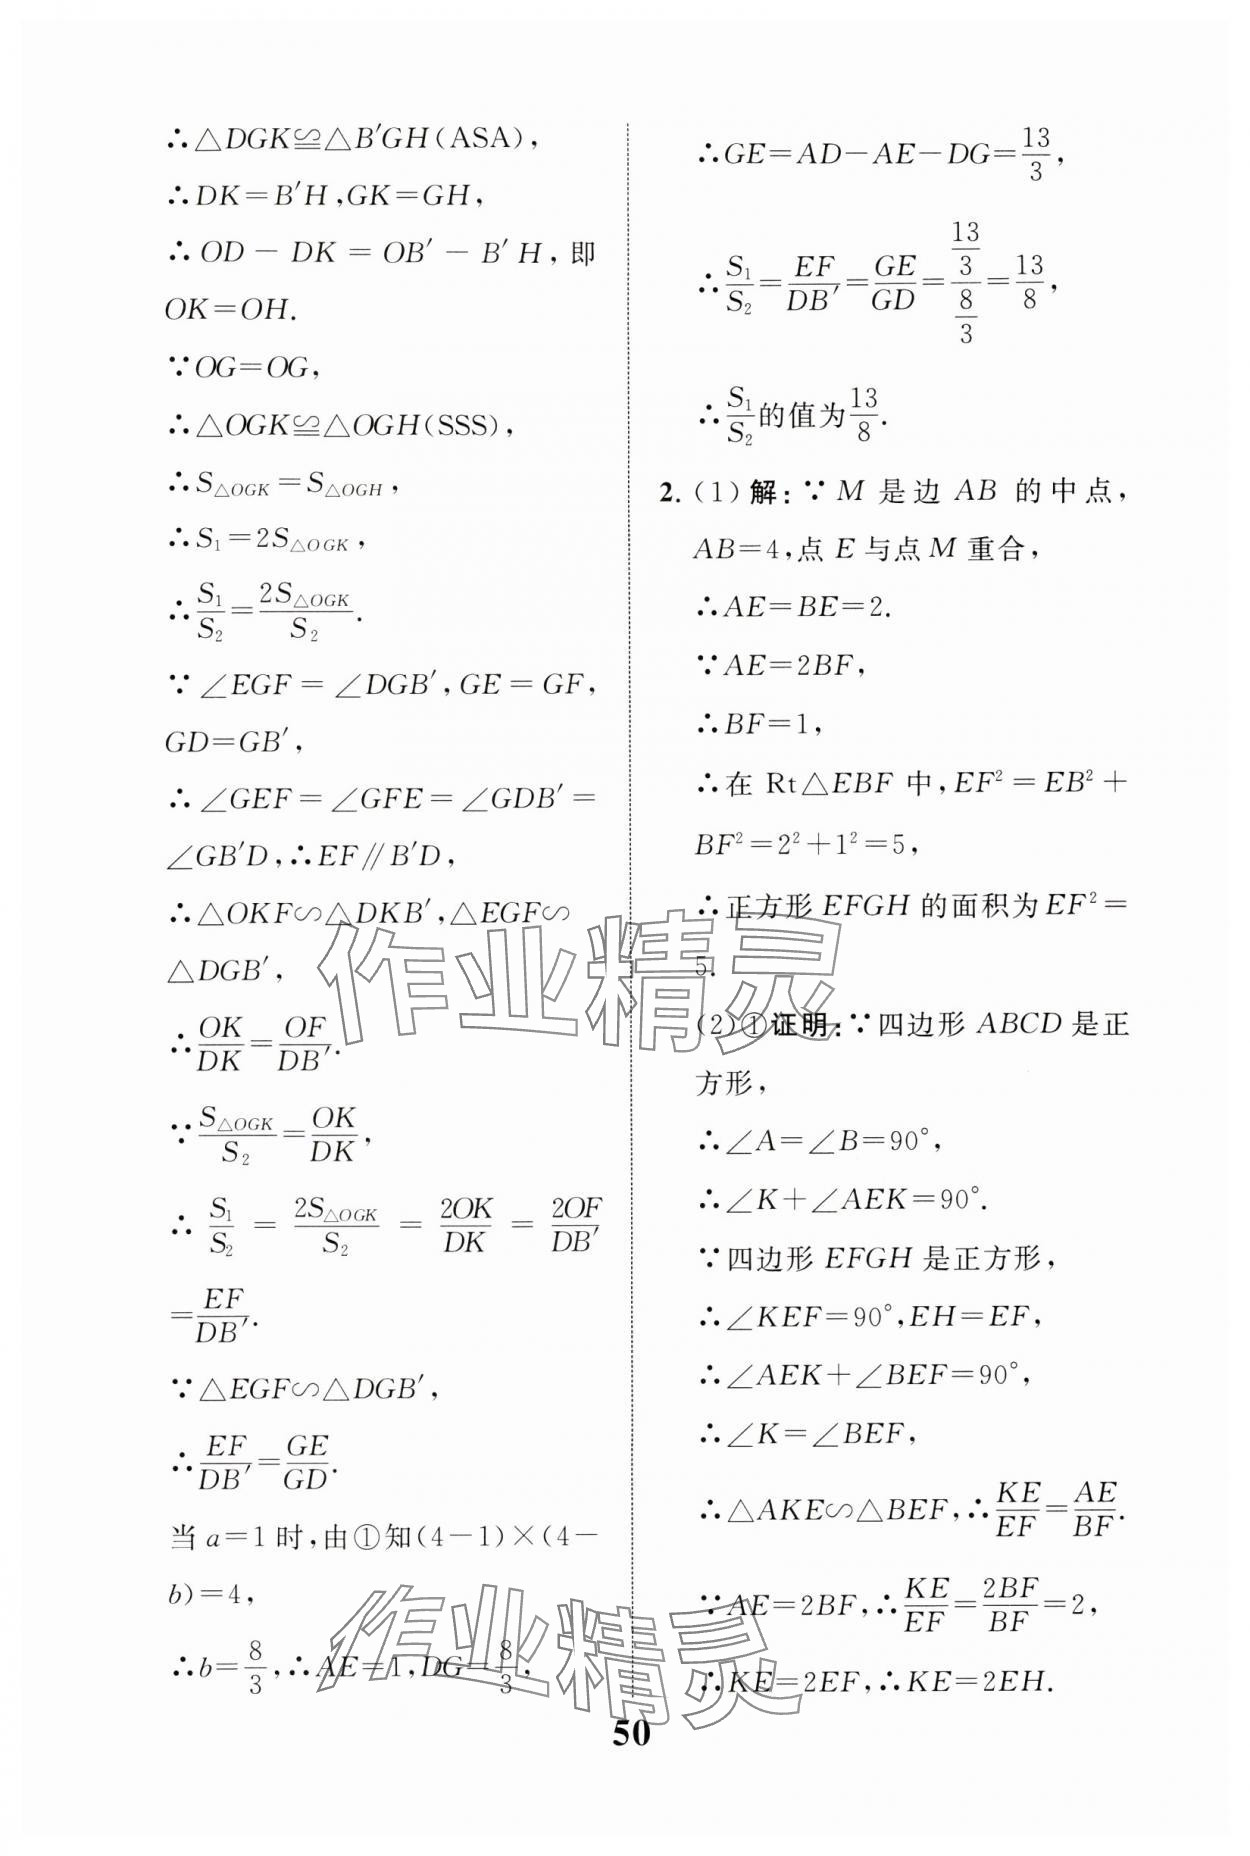 ∴△DGK≌△B′GH(ASA),
∴DK=B′H,GK=GH,
∴OD-DK=OB′-B′H,即
OK=OH.
∵OG=OG,
∴△OGK≌△OGH(SSS),
∴S△OGK=S△OGH,
∴S₁=2S△OGK,
∴S₁/S₂=2S△OGK/S₂.
∵∠EGF=∠DGB′,GE=GF,
GD=GB′,
∴∠GEF=∠GFE=∠GDB′=
∠GB′D,∴EF∥B′D,
∴△OKF∽△DKB′,△EGF∽
△DGB′,
∴OK/DK=OF/DB′.
∵S△OGK/S₂=OK/DK,
∴S₁/S₂=2S△OGK/S₂=2OK/DK=2OF/DB′
=EF/DB′.
∵△EGF∽△DGB′,
∴EF/DB′=GE/GD.
当a=1时,由①知(4-1)×(4-
b)=4,
∴b=8/3,∴AE=1,DG=8/3,
∴GE=AD-AE-DG=13/3,
∴S₁/S₂=EF/DB′=GE/GD=(13/3)/(8/3)=13/8,
∴S₁/S₂的值为13/8.
2.(1)解:∵M是边AB的中点,
AB=4,点E与点M重合,
∴AE=BE=2.
∵AE=2BF,
∴BF=1,
∴在Rt△EBF中,EF²=EB²+
BF²=2²+1²=5,
∴正方形EFGH的面积为EF²=
5.
(2)①证明:∵四边形ABCD是正
方形,
∴∠A=∠B=90°,
∴∠K+∠AEK=90°.
∵四边形EFGH是正方形,
∴∠KEF=90°,EH=EF,
∴∠AEK+∠BEF=90°,
∴∠K=∠BEF,
∴△AKE∽△BEF,∴KE/EF=AE/BF.
∵AE=2BF,∴KE/EF=2BF/BF=2,
∴KE=2EF,∴KE=2EH.
50
作业精灵
作业精灵